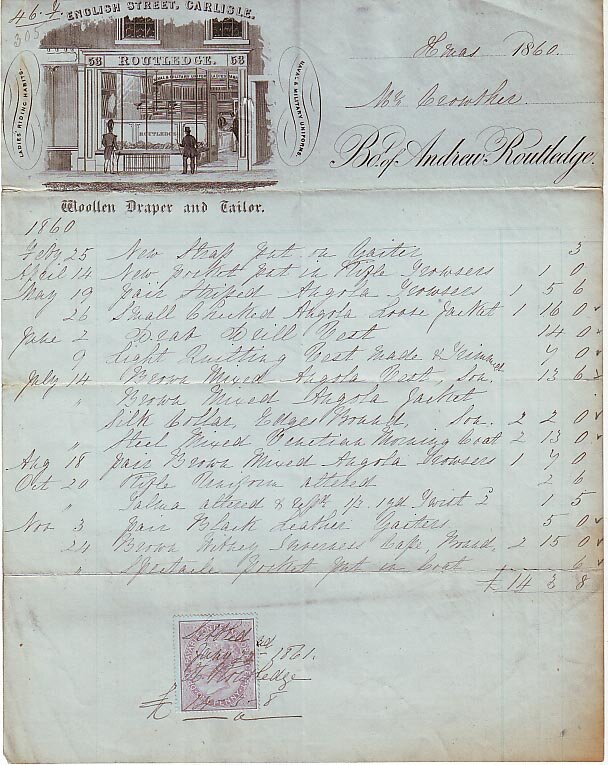 46.
305
ENGLISH STREET, CARLISLE.
53 ROUTLEDGE. 53
LADIES' RIDING HABITS.
NAVAL & MILITARY UNIFORMS.
ROUTLEDGE
Xmas 1860.
Mr. Crowther
Bot. of Andrew Routledge.
Woollen Draper and Tailor.
1860
Feby 25 New Strap put on Gaiter 3
April 14 New pocket put in Rifle Trowsers 1 0
May 19 pair Striped Angola Trowsers 1 5 6
26 Small Checked Angola Loose Jacket 1 16 0
June 2 Drab Drill Vest 14 0
9 Light Quilting Vest made & Trimmed 7 0
July 14 Brown Mixed Angola Vest, Son. 13 6
" Brown Mixed Angola Jacket
Silk Collar, Edges Bound, Son. 2 2 0
" Steel Mixed Venetian Morning Coat 2 13 0
Aug 18 pair Brown Mixed Angola Trowsers 1 7 0
Oct 20 Rifle Uniform altered 2 6
" altered & 1/3. Twist 2 1 5
Nov 3 pair Black Leather Gaiters 5 0
24 Brown Witney Inverness Cape, Bound, 2 15 0
" Spectacle pocket put in Coat 6
£ 14 3 8
Settled
Jany 1861.
Routledge
£ 8